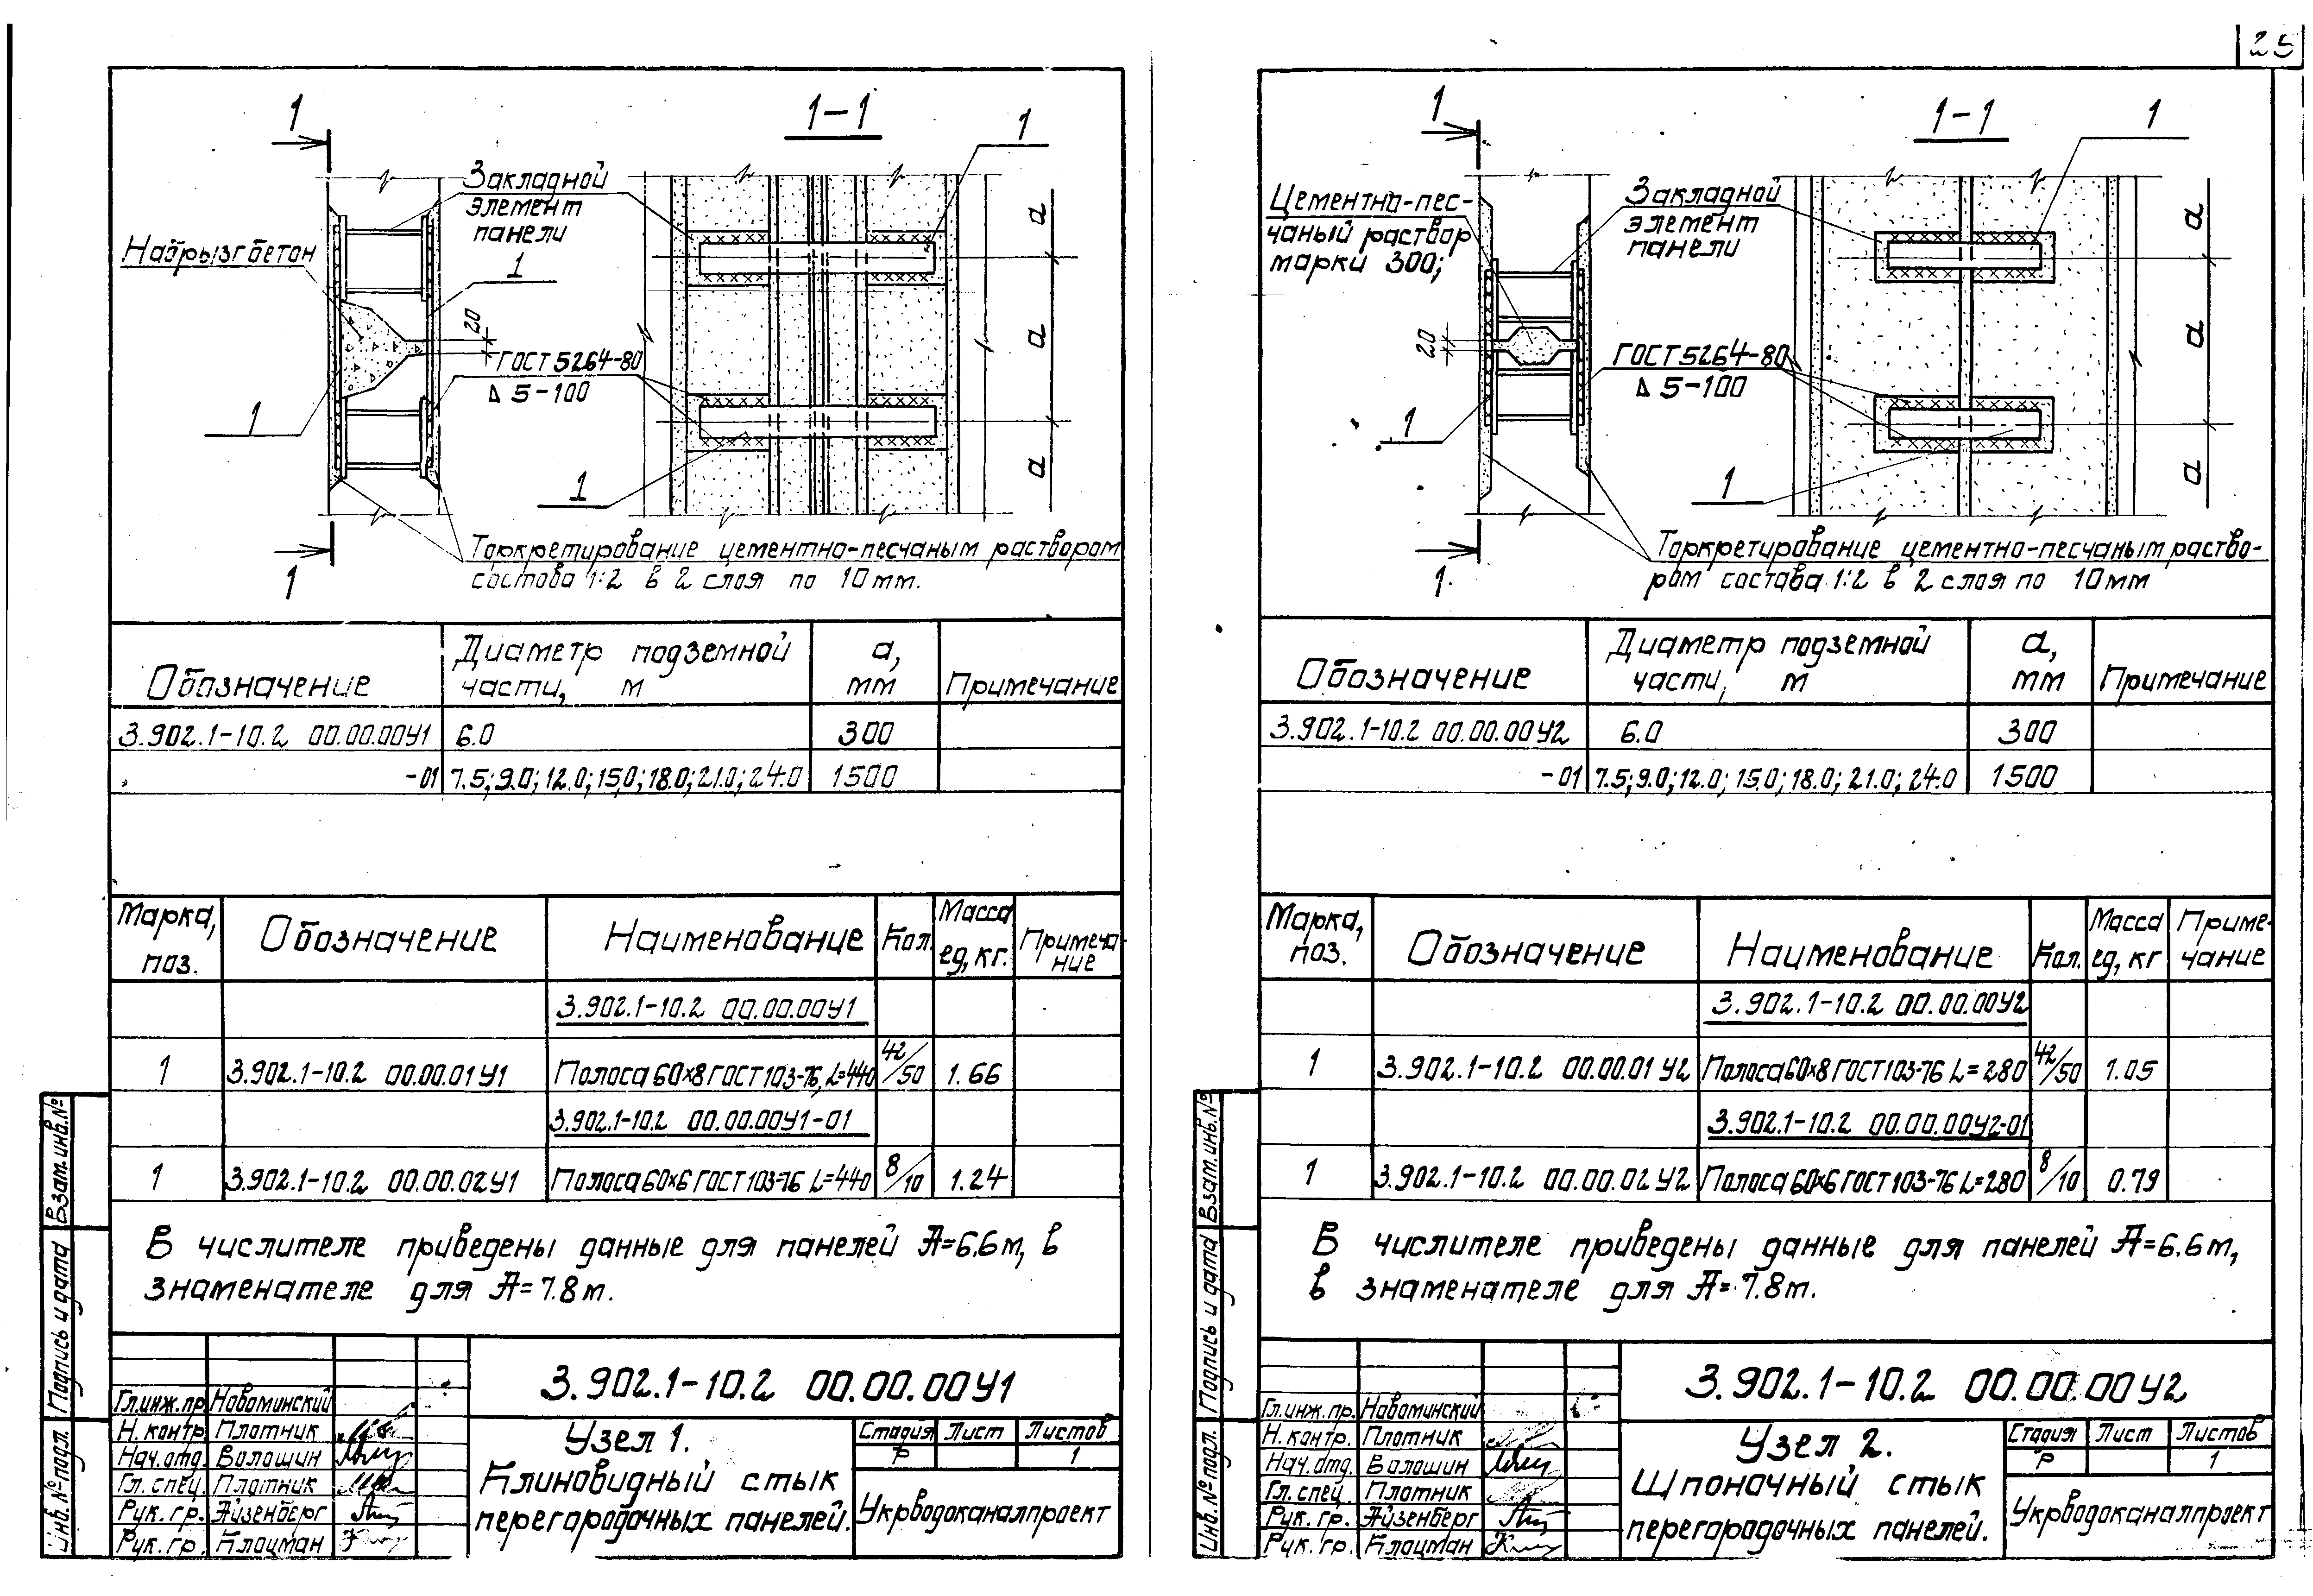 25
1
1-1
1
Закладной
элемент
панели
Набрызгбетон
1
20
ГОСТ 5264-80
Δ 5-100
1
1
а
а
а
1
Торкретирование цементно-песчаным раствором
состава 1:2 в 2 слоя по 10 мм.
Обозначение
Диаметр подземной
части, м
а,
мм
Примечание
3.902.1-10.2 00.00.00У1 6.0 300
-01 7.5; 9.0; 12.0; 15.0; 18.0; 21.0; 24.0 1500
Марка,
поз.
Обозначение
Наименование
Кол.
Масса
ед, кг.
Примеча-
ние
3.902.1-10.2 00.00.00У1
1 3.902.1-10.2 00.00.01У1 Полоса 60×8 ГОСТ 103-76, L=440 42/50 1.66
3.902.1-10.2 00.00.00У1-01
1 3.902.1-10.2 00.00.02У1 Полоса 60×6 ГОСТ 103-76 L=440 8/10 1.24
В числителе приведены данные для панелей А=6.6м, в
знаменателе для А=7.8м.
Взам. инв. №
Подпись и дата
Инв. № подл.
3.902.1-10.2 00.00.00У1
Гл. инж. пр. Новоминский
Н. контр. Плотник
Нач. отд. Волошин
Гл. спец. Плотник
Рук. гр. Айзенберг
Рук. гр. Клоцман
Узел 1.
Клиновидный стык
перегородочных панелей.
Стадия Лист Листов
Р 1
Укрводоканалпроект
1
1-1
1
Цементно-пес-
чаный раствор
марки 300;
Закладной
элемент
панели
20
ГОСТ 5264-80
Δ 5-100
1
1
а
а
а
1.
Торкретирование цементно-песчаным раство-
ром состава 1:2 в 2 слоя по 10 мм
Обозначение
Диаметр подземной
части, м
а,
мм
Примечание
3.902.1-10.2 00.00.00У2 6.0 300
-01 7.5; 9.0; 12.0; 15.0; 18.0; 21.0; 24.0 1500
Марка,
поз.
Обозначение
Наименование
Кол.
Масса
ед, кг
Приме-
чание
3.902.1-10.2 00.00.00У2
1 3.902.1-10.2 00.00.01У2 Полоса 60×8 ГОСТ 103-76 L=280 42/50 1.05
3.902.1-10.2 00.00.00У2-01
1 3.902.1-10.2 00.00.02У2 Полоса 60×6 ГОСТ 103-76 L=280 8/10 0.79
В числителе приведены данные для панелей А=6.6м,
в знаменателе для А=7.8м.
Взам. инв. №
Подпись и дата
Инв. № подл.
3.902.1-10.2 00.00.00У2
Гл. инж. пр. Новоминский
Н. контр. Плотник
Нач. отд. Волошин
Гл. спец. Плотник
Рук. гр. Айзенберг
Рук. гр. Клоцман
Узел 2.
Шпоночный стык
перегородочных панелей.
Стадия Лист Листов
Р 1
Укрводоканалпроект